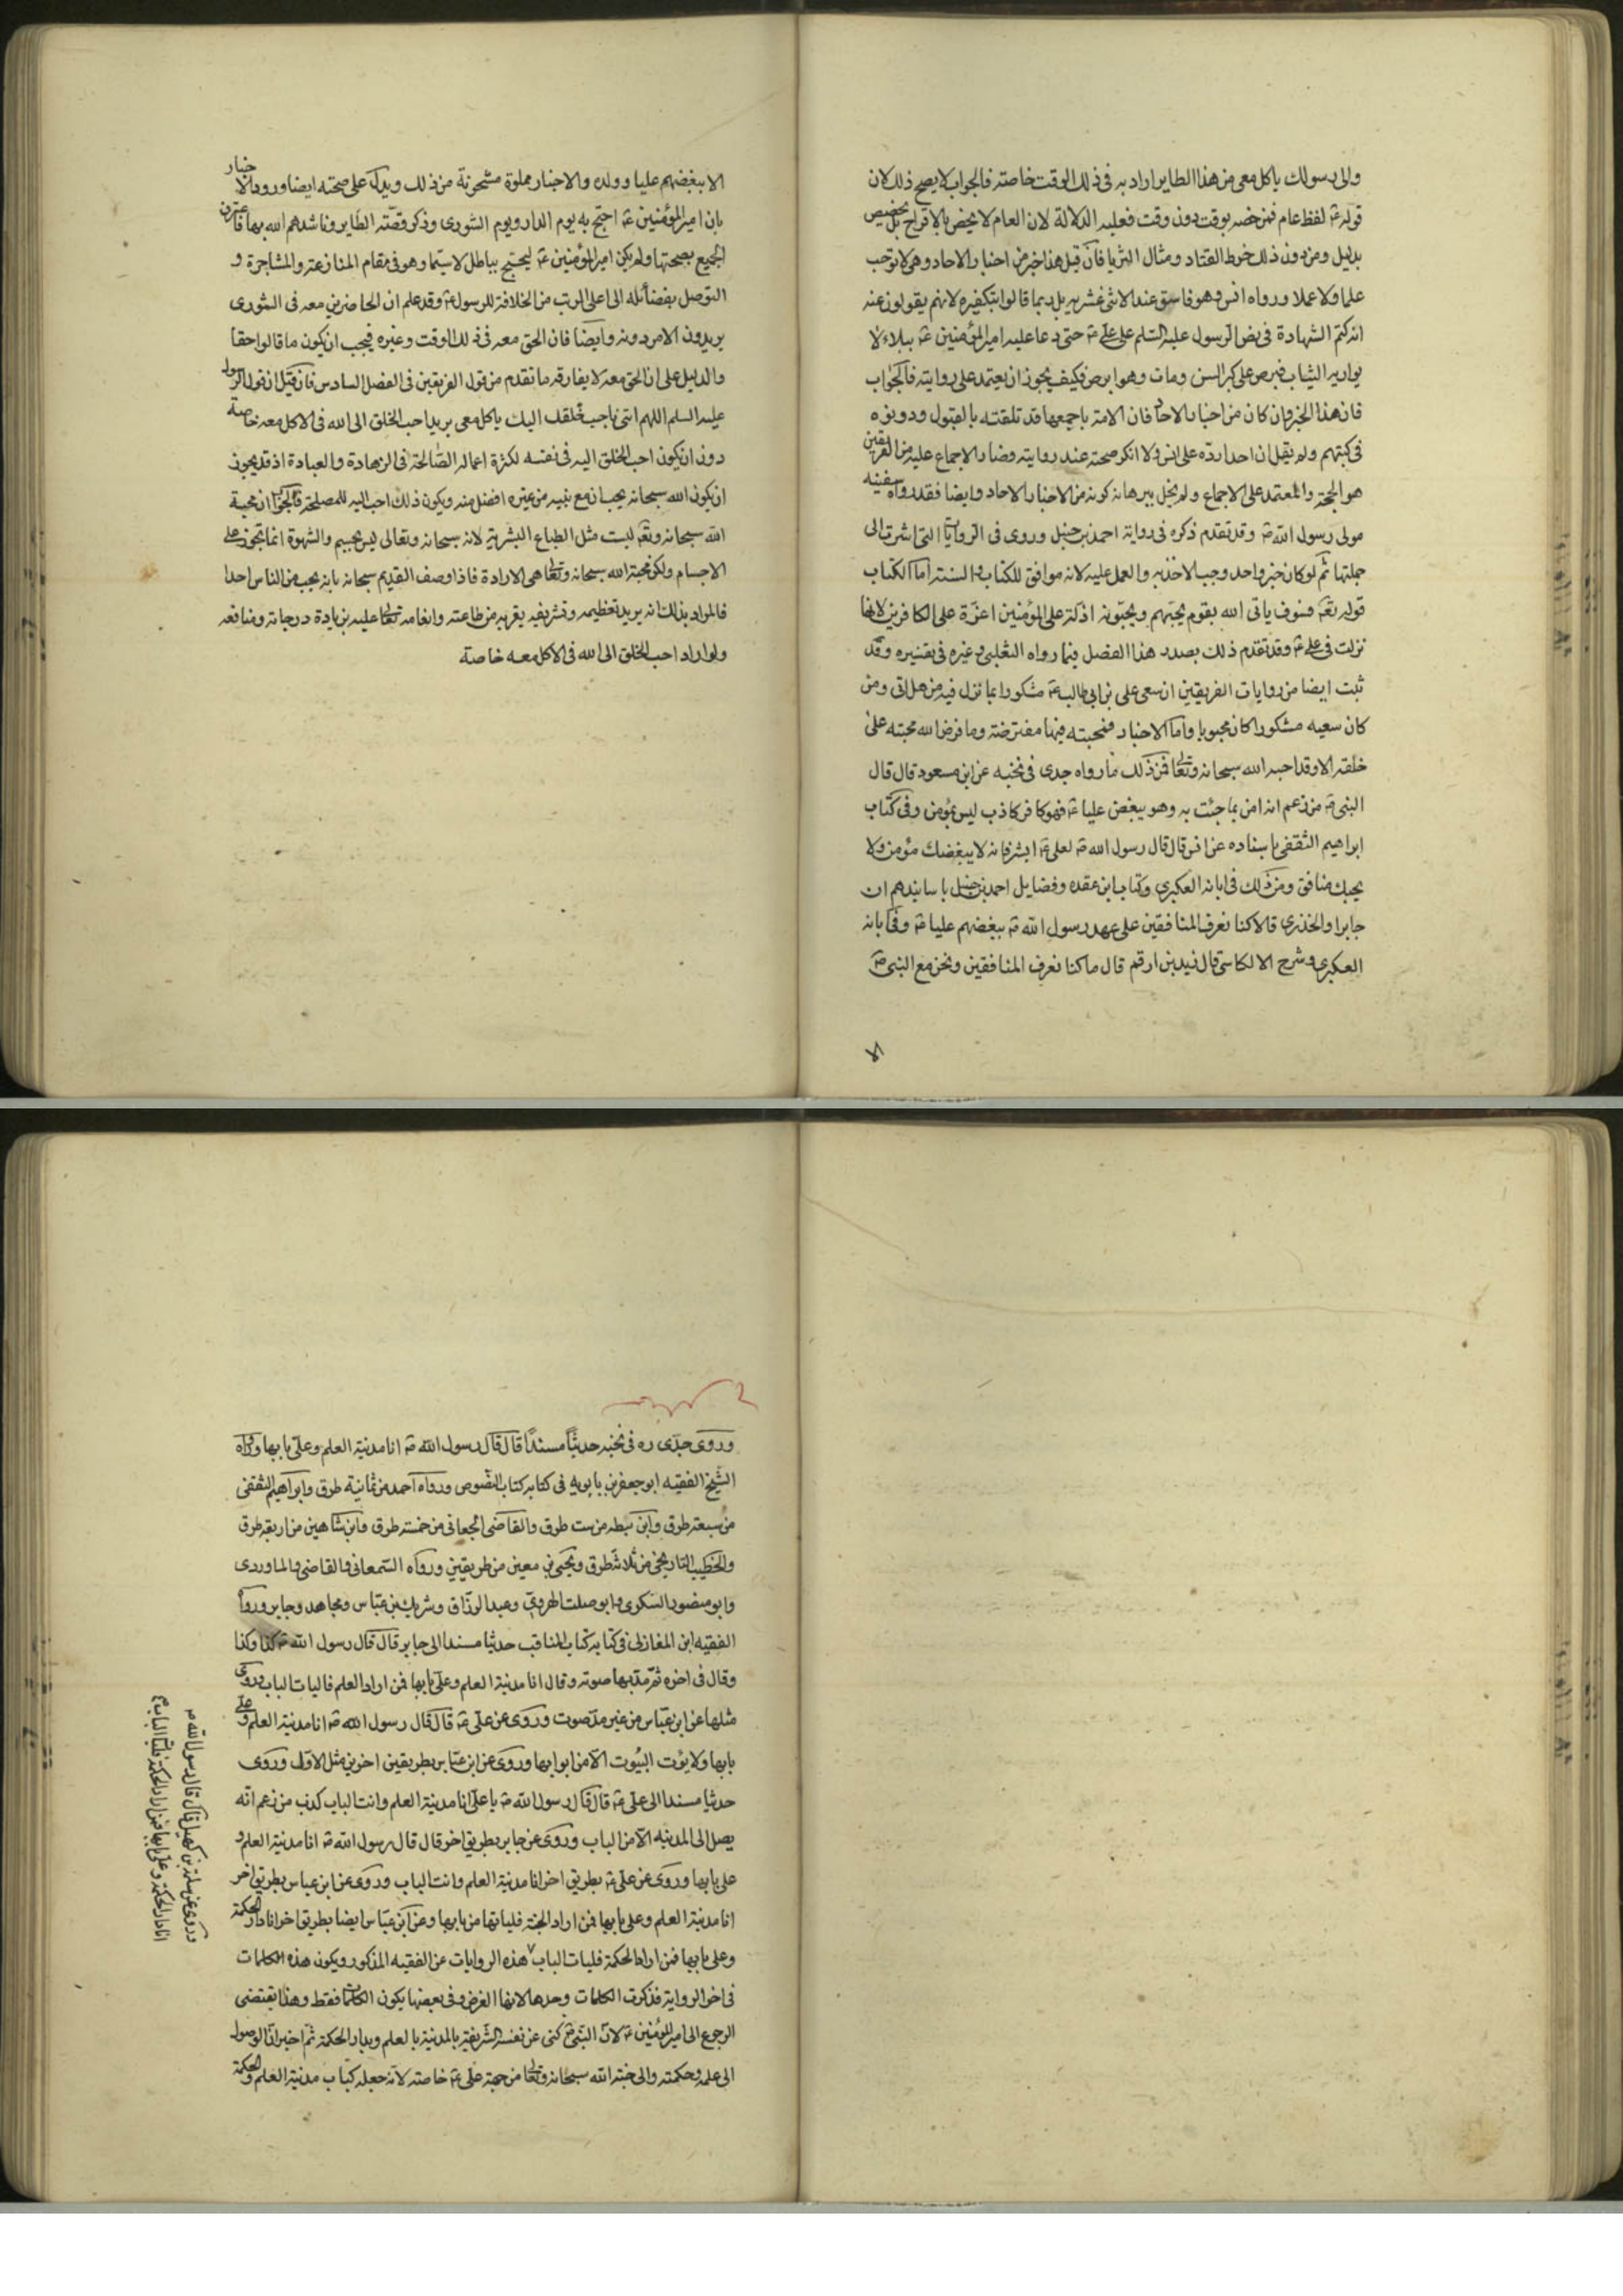 والى رسولك ياكل معى من هذا الطاير اراد به فى ذلك الوقت خاصة فالجواب لا يصح ذلك لان
قوله ع لفظ عام فمن خصه بوقت دون وقت فعليه الدلالة لان العام لا يخص بالاقتراح بل يخصيص
بدليل ومن دون ذلك خرط القتاد ومثال الثريا فان قيل هذا خبر من اخبار الاحاد وهى لا توجب
علما ولا عملا ورواه انس وهو فاسق عند الاثنى عشريه بل ربما قالوا بتكفيره لانهم يقولون عنه
انه كتم الشهادة فى نص الرسول عليه السلم على على ع حتى دعا عليه امير المؤمنين ع ببلاء لا
يواريه الثياب فبرص على كبر السن ومات وهو ابرص فكيف يجوز ان يعتمد على روايته فالجواب
فان هذا الخبر وان كان من اخبار الاحاد فان الامة باجمعها قد تلقته بالقبول ودونوه
فى كتبهم ولم يقل ان احدا رده على انس ولا انكر صحته عند روايته فصار الاجماع عليه من الفريقين
هو الحجة والمعتمد على الاجماع ولم يخل ببرهانه كونه من الاخبار الاحاد وايضا فقد رواه سفينه
مولى رسول الله ص وقد تقدم ذكره فى رواية احمد بن حنبل وروى فى الروايات التى اشرت الى
جملتها ثم لو كان خبر واحد وجب الاخذ به والعمل عليه لانه موافق للكتاب والسنة اما الكتاب
قوله تعه فسوف ياتى الله بقوم يحبهم ويحبونه اذلة على المؤمنين اعزة على الكافرين لانها
نزلت فى على ع وقد تقدم ذلك بصدر هذا الفصل فيما رواه الثعلبى وغيره فى تفسيره وقد
ثبت ايضا من روايات الفريقين ان سعى على بن ابى طالب ع مشكورا بما نزل فيه من هل اتى ومن
كان سعيه مشكورا كان محبوبا واما الاخبار فمحبته فيها مفترضة وما فرض الله محبته على
خلقه الا وقد احبه الله سبحانه وتعالى فمن ذلك ما رواه جدى فى نخبه عن ابن مسعود قال قال
النبى ص من زعم انه امن بما جئت به وهو يبغض عليا ع فهو كافر كاذب ليس بمؤمن وفى كتاب
ابراهيم الثقفى باسناده عن انس قال قال رسول الله ص لعلى ع ابشر فانه لا يبغضك مؤمن ولا
يحبك منافق ومن ذلك فى ابانه العكبرى وكتاب ابن عقده وفضايل احمد بن حنبل باسانيدهم ان
جابرا والخدرى قالا كنا نعرف المنافقين على عهد رسول الله ص ببغضهم عليا ع وفى ابانه
العكبرى وشرح الالكاسى قال زيد بن ارقم قال ما كنا نعرف المنافقين ونحن مع النبى ص
الا
الا ببغضهم عليا وولده والاخبار مملوة مشحونة من ذلك ويدل على صحته ايضا ورود الاخبار
بان امير المؤمنين ع احتج به يوم الدار ويوم الشورى وذكر قصة الطاير وناشدهم الله بها فاعترف
الجميع بصحتها ولم يكن امير المؤمنين ع ليحتج بباطل لا سيما وهو فى مقام المنازعة والمشاجرة و
التوصل بفضائله الى اعلى الرتب من الخلافة للرسول ع وقد علم ان الحاضرين معه فى الشورى
يريدون الامر دونه وايضا فان الحق معه فى ذلك الوقت وغيره فيجب ان يكون ما قالوا حقا
والدليل على ان الحق معه لا يفارقه ما تقدم من قول الفريقين فى الفصل السادس فان قيل ان قول الرسول
عليه السلم اللهم ائتى باحب خلقك اليك ياكل معى يريد احب الخلق الى الله فى الاكل معه خاصة
دون ان يكون احب الخلق اليه فى نفسه لكثرة اعماله الصالحة فى الزهادة والعبادة اذ قد يجوز
ان يكون الله سبحانه يحب ان مع نبيه من غيره افضل منه ويكون ذلك احب اليه للمصلحة فالجواب ان محبة
الله سبحانه وتعه ليست مثل الطباع البشرية لانه سبحانه وتعالى ليس بجسم والشهوة انما تجوز على
الاجسام ولكن محبة الله سبحانه وتعالى هى الارادة فاذا وصف القديم سبحانه بانه يحب من الناس احدا
فالمراد بذلك انه يريد تعظيمه وتشريفه بقربه من طاعته وانعامه تعالى عليه بزيادة درجاته ومنافعه
ولو اراد احب الخلق الى الله فى الاكل معه خاصة
وروى جدى ره فى نخبه حديثا مسندا قال قال رسول الله ص انا مدينة العلم وعلى بابها ورواه
الشيخ الفقيه ابو جعفر بن بابويه فى كتابه كتاب النصوص ورواه احمد من ثمانية طرق وابراهيم الثقفى
من سبعة طرق وابن بطه من ست طرق والقاضى الجعانى من خمسة طرق وابن شاهين من اربعة طرق
والخطيب التاريخى من ثلاثة طرق ويحيى بن معين من طريقين ورواه السمعانى والقاضى والماوردى
وابو منصور السكرى وابو صلت الهروى وعبد الرزاق وشريك بن عباس ومجاهد وجابر ورواه
الفقيه ابن المغازلى فى كتابه كتاب المناقب حديثا مسندا الى جابر قال قال رسول الله ص كذا وكذا
وقال فى اخره ثم مد بها صوته وقال انا مدينة العلم وعلى بابها فمن اراد العلم فاليات الباب وروى
مثلها عن ابن عباس من غير مد صوت وروى عن على ع قال قال رسول الله ص انا مدينة العلم وعلى
بابها ولا يؤت البيوت الا من ابوابها وروى عن ابن عباس بطريقين اخرين مثل الاول وروى
حديثا مسندا الى على ع قال قال رسول الله ص يا على انا مدينة العلم وانت الباب كذب من زعم انه
يصل الى المدينه الا من الباب وروى عن جابر بطريق اخر قال قال رسول الله ص انا مدينة العلم و
على بابها وروى عن على ع بطريق اخر انا مدينة العلم وانت الباب وروى عن ابن عباس بطريق اخر
انا مدينة العلم وعلى بابها فمن اراد الجنة فلياتها من بابها وعن ابن عباس ايضا بطريق اخر انا دار الحكمة
وعلى بابها فمن اراد الحكمة فليات الباب هذه الروايات عن الفقيه المذكور ويكون هذه الكلمات
فى اخر الرواية فذكرت الكلمات وحدها لانها الغرض وفى بعضها يكون الكلمات فقط وهذا يقتضى
الرجوع الى امير المؤمنين ع لان النبى ص كنى عن نفسه الشريفة بالمدينة بالعلم وبدار الحكمة ثم اخبر ان الوصول
الى علمه وحكمته والى جنة الله سبحانه وتعالى من جهة على ع خاصة لانه جعله كباب مدينة العلم والحكمة
وروى عن سلمة بن كهيل قال قال رسول الله ص
انا دار الحكمة وعلى بابها فمن اراد الحكمة فليات الباب م